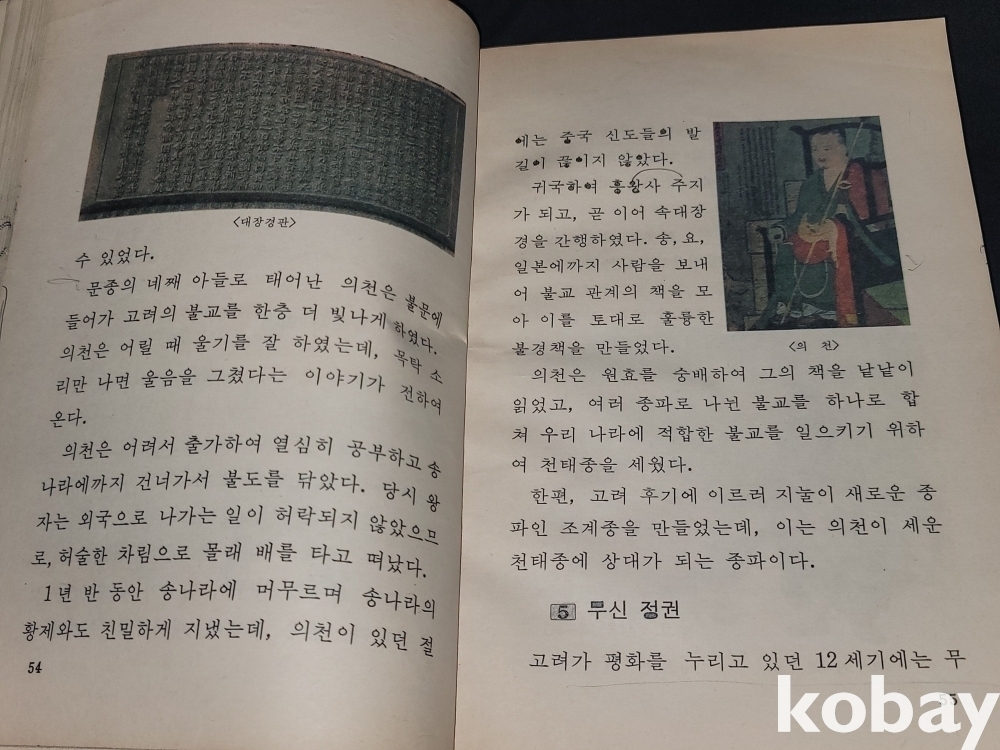 〈대장경판〉
수 있었다.
문종의 네째 아들로 태어난 의천은 불문에
들어가 고려의 불교를 한층 더 빛나게 하였다.
의천은 어릴 때 울기를 잘 하였는데, 목탁 소
리만 나면 울음을 그쳤다는 이야기가 전하여
온다.
의천은 어려서 출가하여 열심히 공부하고 송
나라에까지 건너가서 불도를 닦았다. 당시 왕
자는 외국으로 나가는 일이 허락되지 않았으므
로, 허술한 차림으로 몰래 배를 타고 떠났다.
1년 반 동안 송나라에 머무르며 송나라의
황제와도 친밀하게 지냈는데, 의천이 있던 절
54
에는 중국 신도들의 발
길이 끊이지 않았다.
귀국하여 흥왕사 주지
가 되고, 곧 이어 속대장
경을 간행하였다. 송, 요,
일본에까지 사람을 보내
어 불교 관계의 책을 모
아 이를 토대로 훌륭한
불경책을 만들었다.
〈의 천〉
의천은 원효를 숭배하여 그의 책을 낱낱이
읽었고, 여러 종파로 나뉜 불교를 하나로 합
쳐 우리 나라에 적합한 불교를 일으키기 위하
여 천태종을 세웠다.
한편, 고려 후기에 이르러 지눌이 새로운 종
파인 조계종을 만들었는데, 이는 의천이 세운
천태종에 상대가 되는 종파이다.
5 무신 정권
고려가 평화를 누리고 있던 12세기에는 무
55
kobay